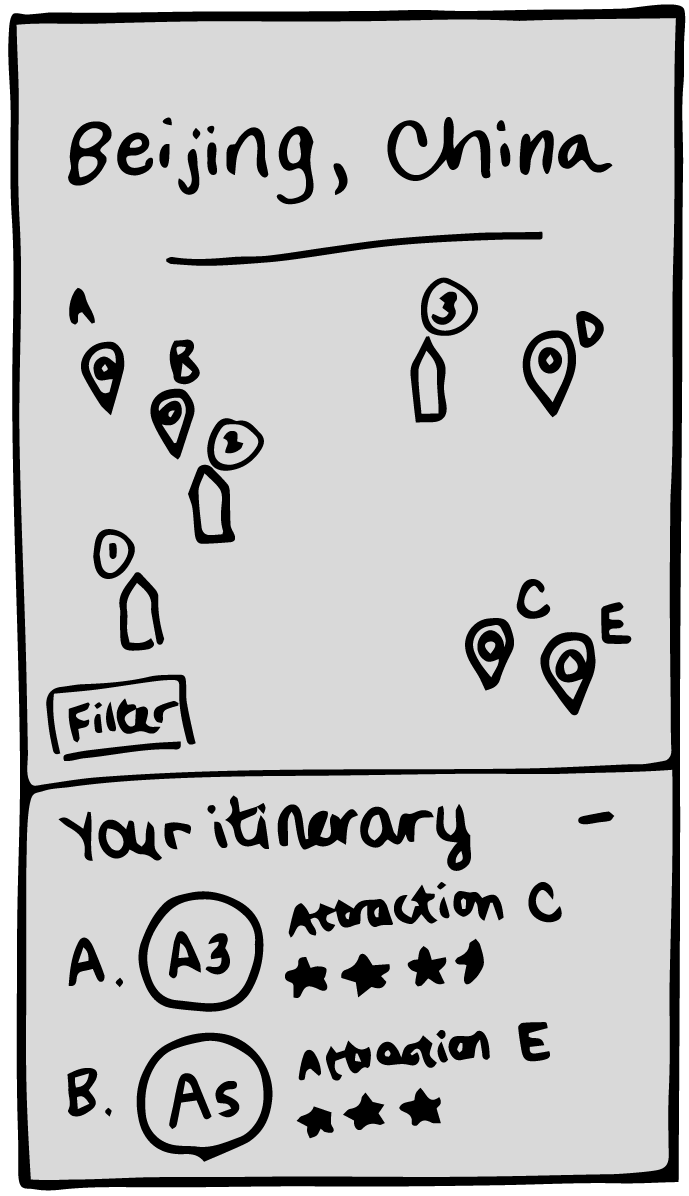 Beijing, China
A
3
D
B
2
1
C
E
Filter
Your itinerary
A. A3 Attraction C
B. A5 Attraction E